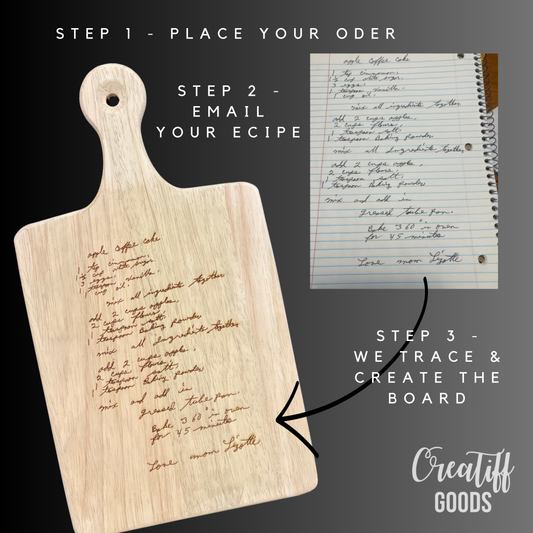 STEP 1 - PLACE YOUR ODER
STEP 2 -
EMAIL
YOUR ECIPE
apple Coffee Cake
1 tsp cinnamon,
1 ½ cup white sugar
3 eggs,
1 teaspoon vanilla.
1 cup oil,
mix all ingredients together
add 2 cups apples,
2 cups flour,
1 teaspoon salt,
1 teaspoon Baking Powder
mix all Ingredients together,
add 2 cups apples
2 cups flour,
1 teaspoon salt,
1 teaspoon Baking Powder
mix and add in
greased tube pan.
Bake 360° in oven
for 45 minutes
Love mom
apple Coffee Cake
1 tsp cinnamon,
cup white sugar
3 eggs,
1 teaspoon vanilla.
1 cup oil,
mix all ingredients together
add 2 cups apples,
2 cups flour,
1 teaspoon salt,
1 teaspoon Baking Powder
mix all Ingredients together
add 2 cups apples,
2 cups flour,
1 teaspoon salt,
1 teaspoon Baking Powder
mix and add in
greased tube pan.
Bake 360° in oven
for 45 minutes
Love mom
STEP 3 -
WE TRACE &
CREATE THE
BOARD
Creatiff
GOODS